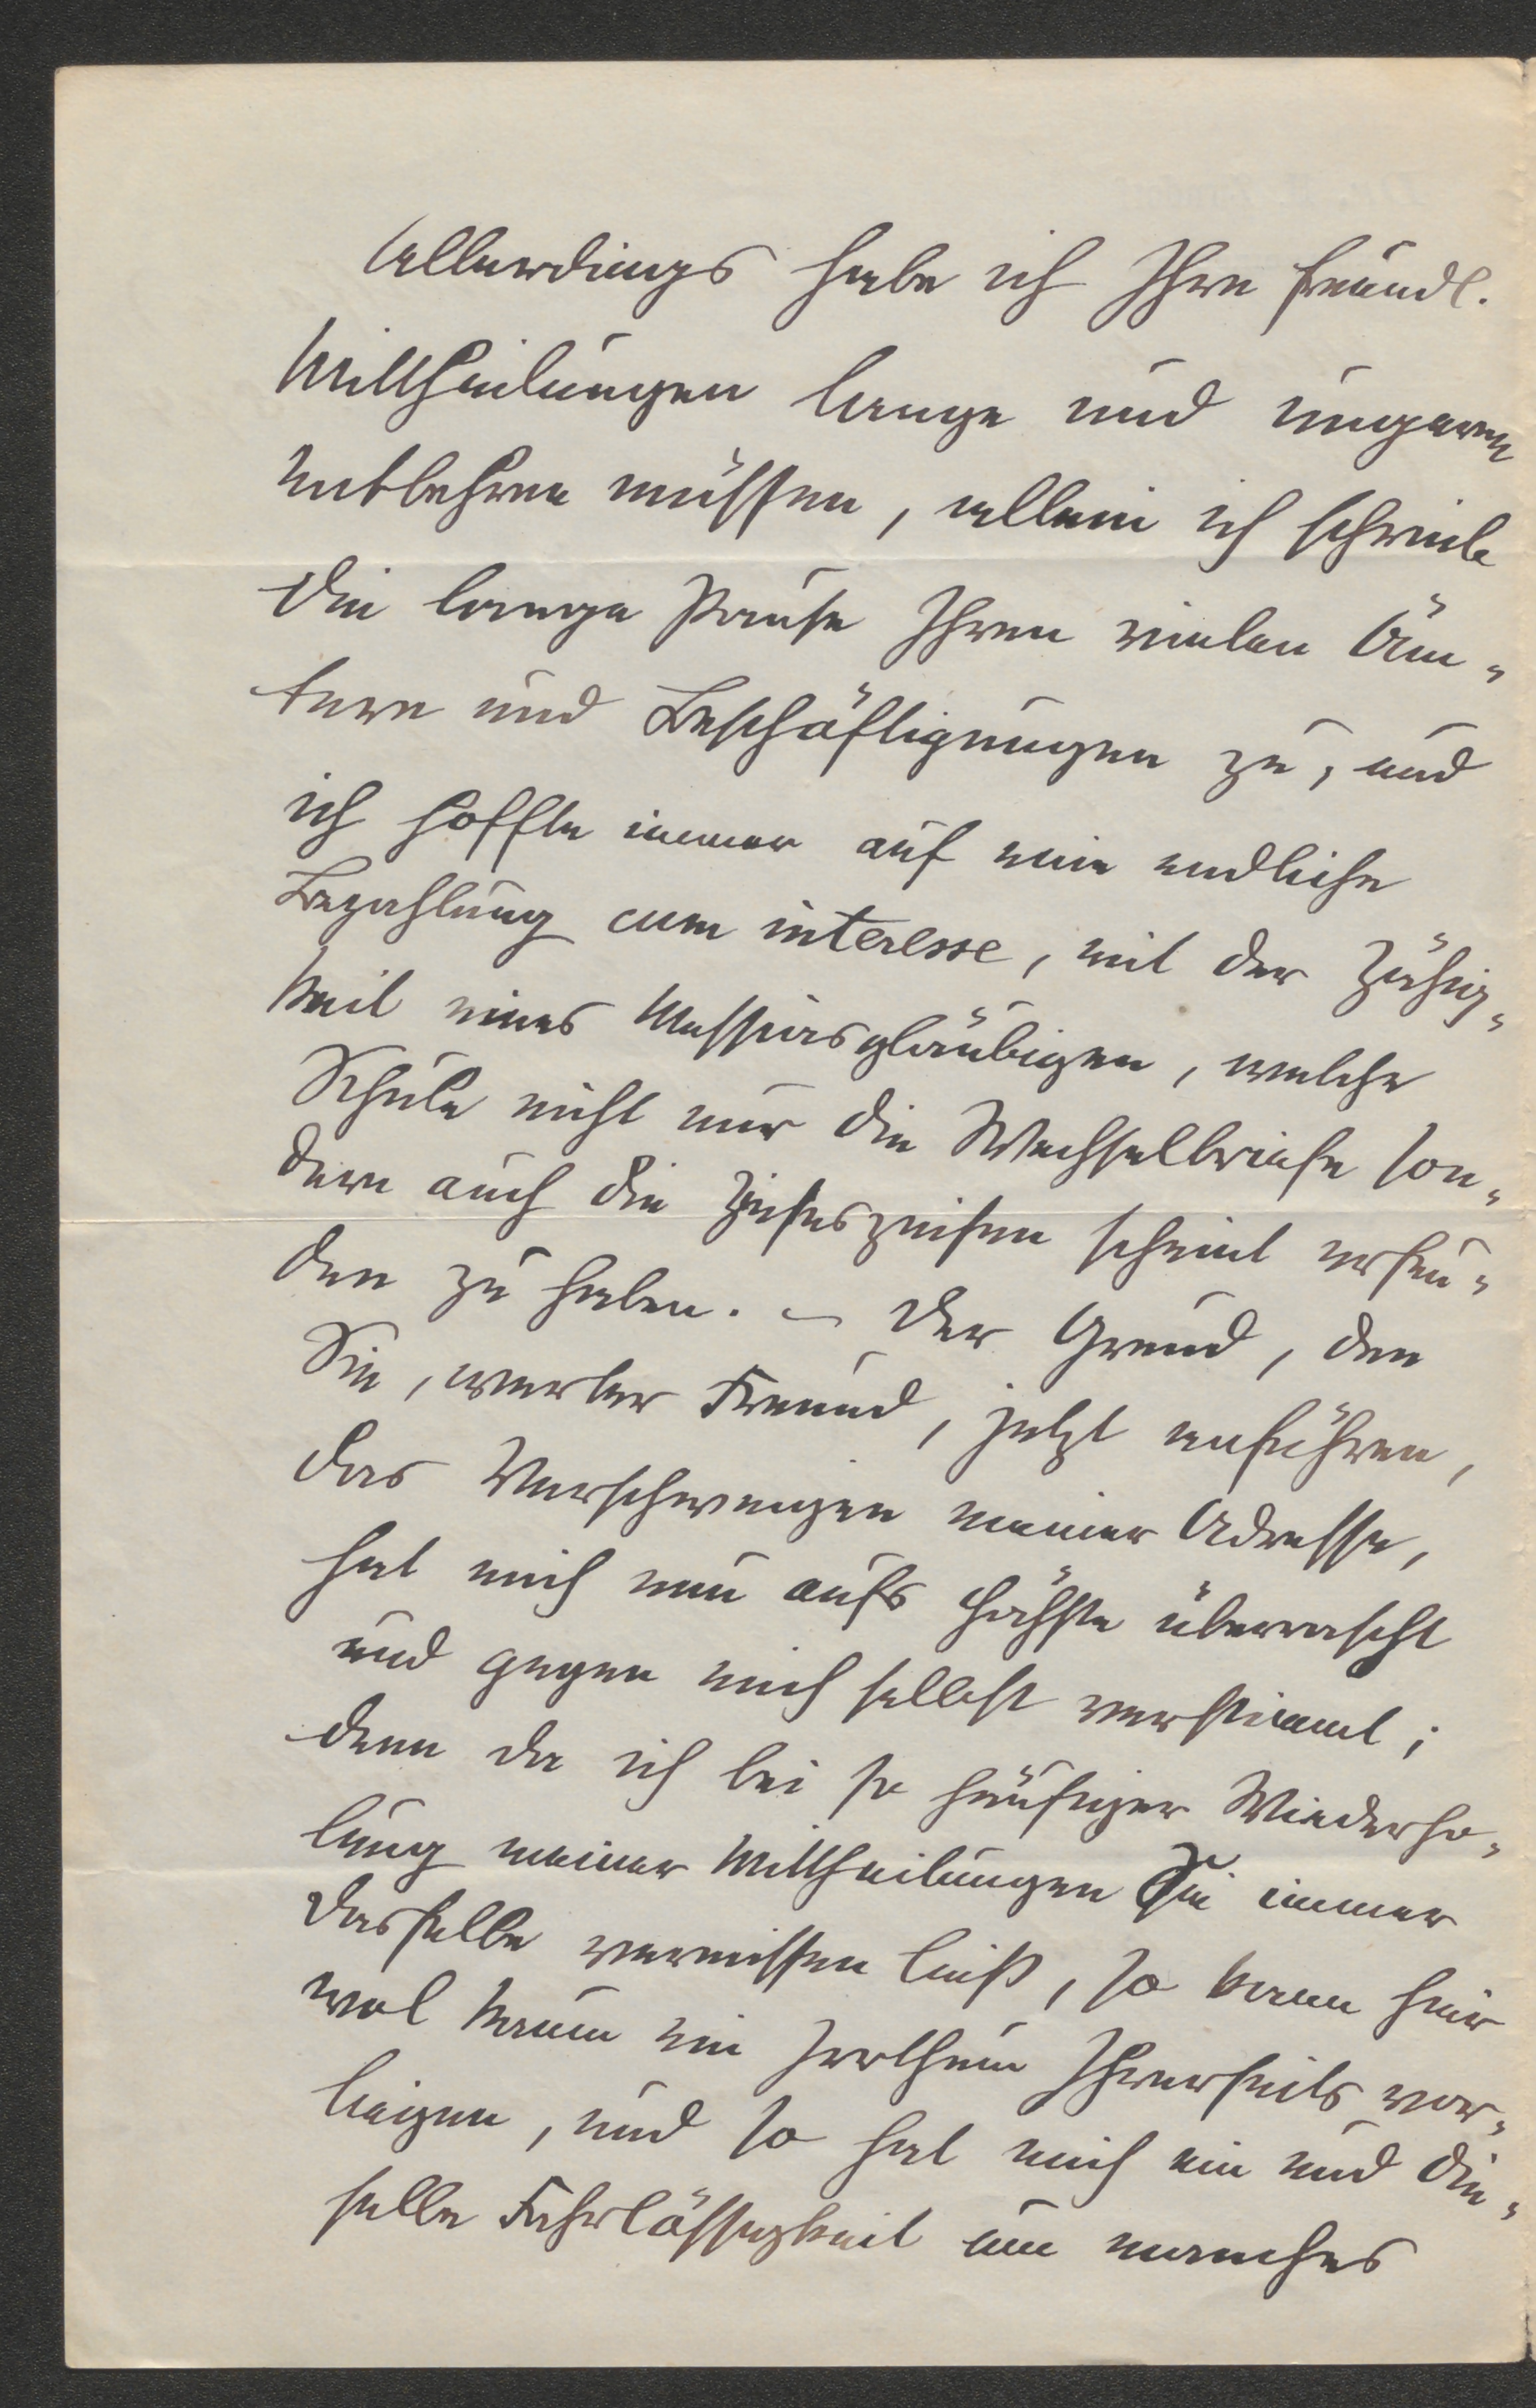 Allerdings habe ich Ihre freundl.
Mittheilungen lange und ungern
entbehren müssen, allein ich schrieb
die lange Pause Ihren vielen Äm-
tern und Beschäftigungen zu, und
ich hoffte immer auf eine endliche
Bezahlung cum interesse, mit der Zähig-
keit eines Messiasgläubigen, welche
Schule nicht nur die Wechselbriefe son-
dern auch die Zinseszinsen scheint erfun-
den zu haben. – Der Grund, den
Sie, werter Freund, jetzt anführen,
das Verschweigen meiner Adresse,
hat mich nun aufs höchste überrascht
und gegen mich selbst verstimmt;
denn da ich bei so häufiger Wiederho-
lung meiner Mittheilungen Sie immer
dasselbe vermissen ließ, so kann hier
wol kaum ein Irrthum Ihrerseits vor-
liegen, und so hat mich ein und die-
selbe Fahrlässigkeit um manches